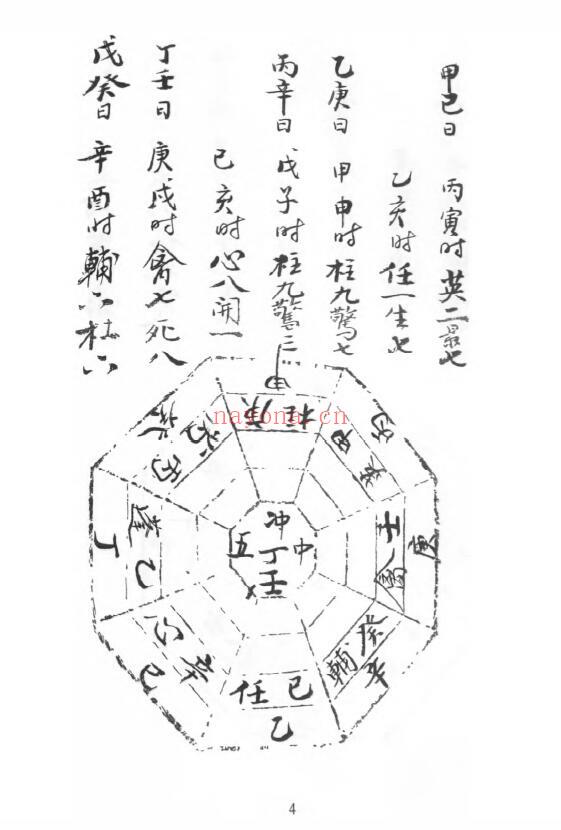 甲己日 丙寅时英二景七
乙亥时任一生七
乙庚日 甲申时柱九驚七
丙辛日 戊子时柱九驚三
己亥时心八開一
丁壬日 庚戌时禽七死八
戊癸日 辛酉时輔六杜六
nayona.cn
柱
冲
五 丁 中
壬
壬
禽
蓬 乙
丁
心
辛
己
任 己
乙
輔
癸
辛
4